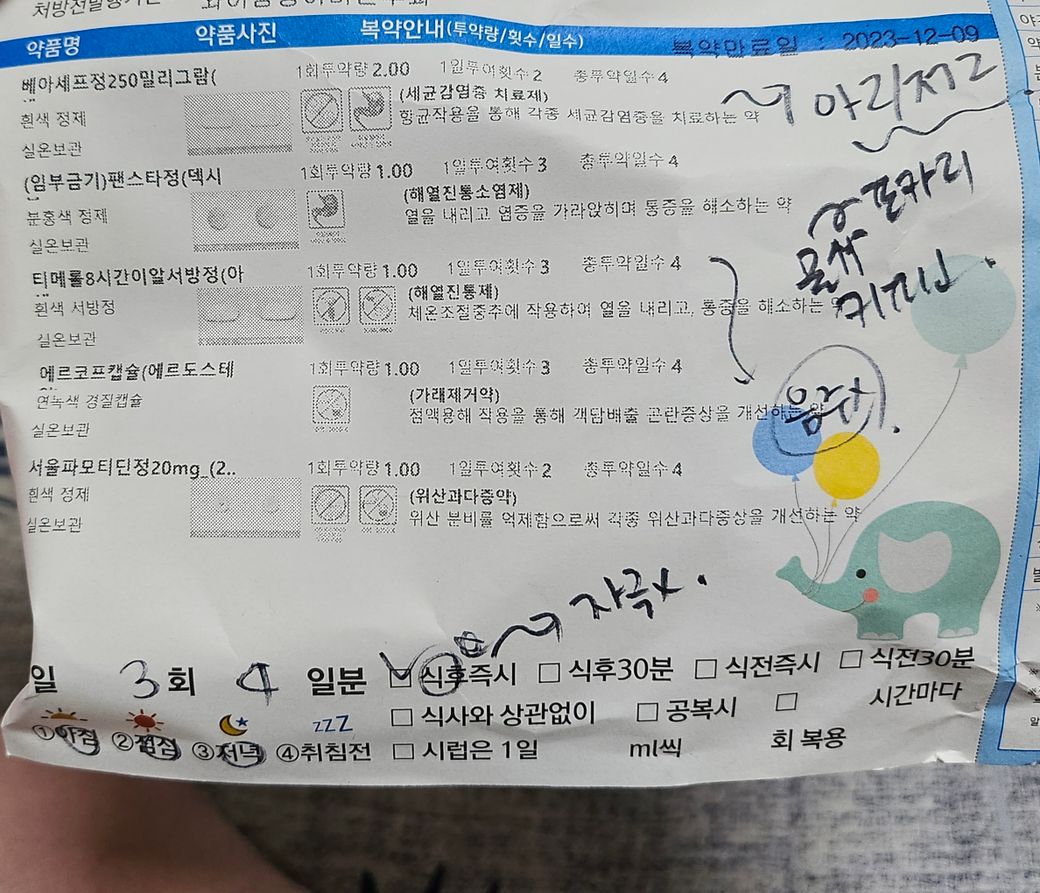 약품명 약품사진 복약안내(투약량/횟수/일수) 복약만료일 : 2023-12-09
베아세프정250밀리그람( 1회투약량2.00 1일투여횟수2 총투약일수4
(세균감염증 치료제)
흰색 정제 항균작용을 통해 각종 세균감염증을 치료하는 약
실온보관
(임부금기)팬스타정(덱시 1회투약량1.00 1일투여횟수3 총투약일수4
(해열진통소염제)
분홍색 정제 열을 내리고 염증을 가라앉히며 통증을 해소하는 약
실온보관
티메롤8시간이알서방정(아 1회투약량1.00 1일투여횟수3 총투약일수4
(해열진통제)
흰색 서방정 체온조절중추에 작용하여 열을 내리고, 통증을 해소하는
실온보관
에르코프캡슐(에르도스테 1회투약량1.00 1일투여횟수3 총투약일수4
(가래제거약)
연녹색 경질캡슐 점액용해 작용을 통해 객담배출 곤란증상을 개선하는 약
실온보관
서울파모티딘정20mg_(2.. 1회투약량1.00 1일투여횟수2 총투약일수4
(위산과다증약)
흰색 정제 위산 분비를 억제함으로써 각종 위산과다증상을 개선하는 약
실온보관
포카리
음주x
자극x.
일 3회 4 일분 식후즉시 식후30분 식전즉시 식전30분
식사와 상관없이 공복시 시간마다
①아침 ②점심 ③저녁 ④취침전 시럽은 1일 ml씩 회 복용
zzZ